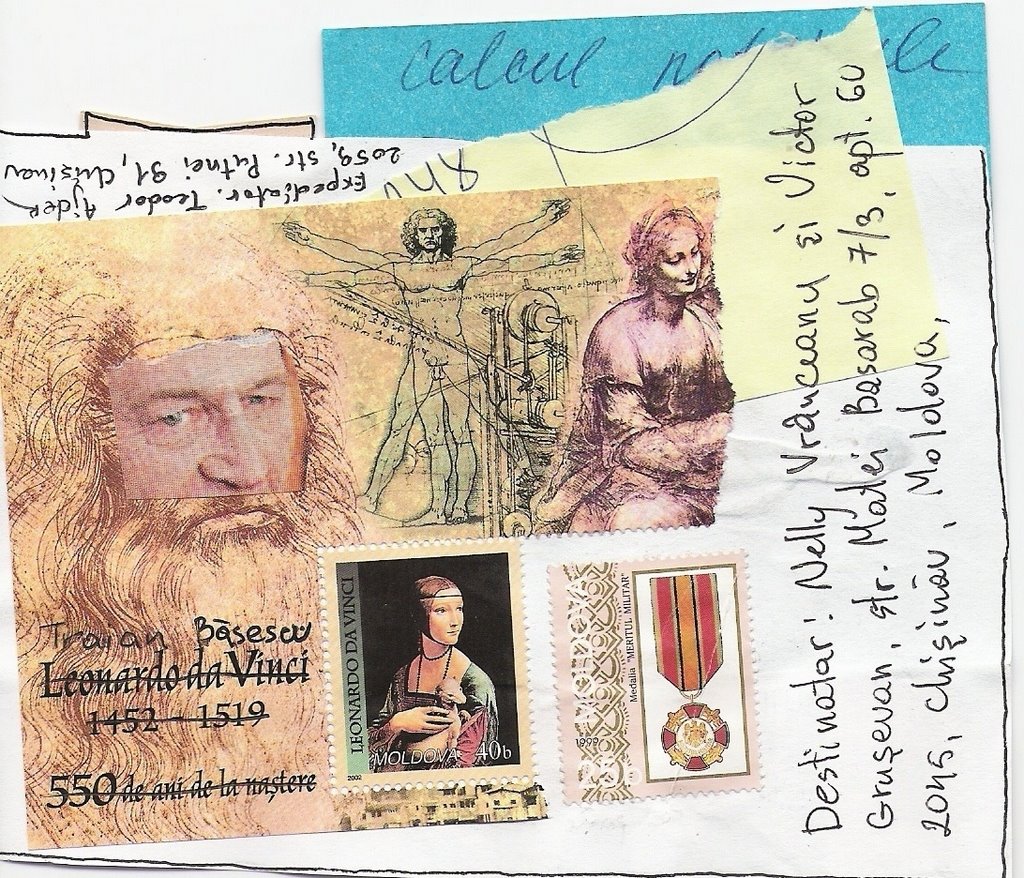 calcul
Expeditor: Teodor Ajder
2059, str. Putnei 91, Chișinău
Destinatar: Nelly Vrânceanu și Victor
Grușevan, str. Matei Basarab 7/3, apt. 60
2045, Chișinău, Moldova,
Traian Băsescu
Leonardo da Vinci
1452 - 1519
550 de ani de la naștere
LEONARDO DA VINCI
MOLDOVA 40b
2002
Medalia "MERITUL MILITAR"
MOLDOVA
1999